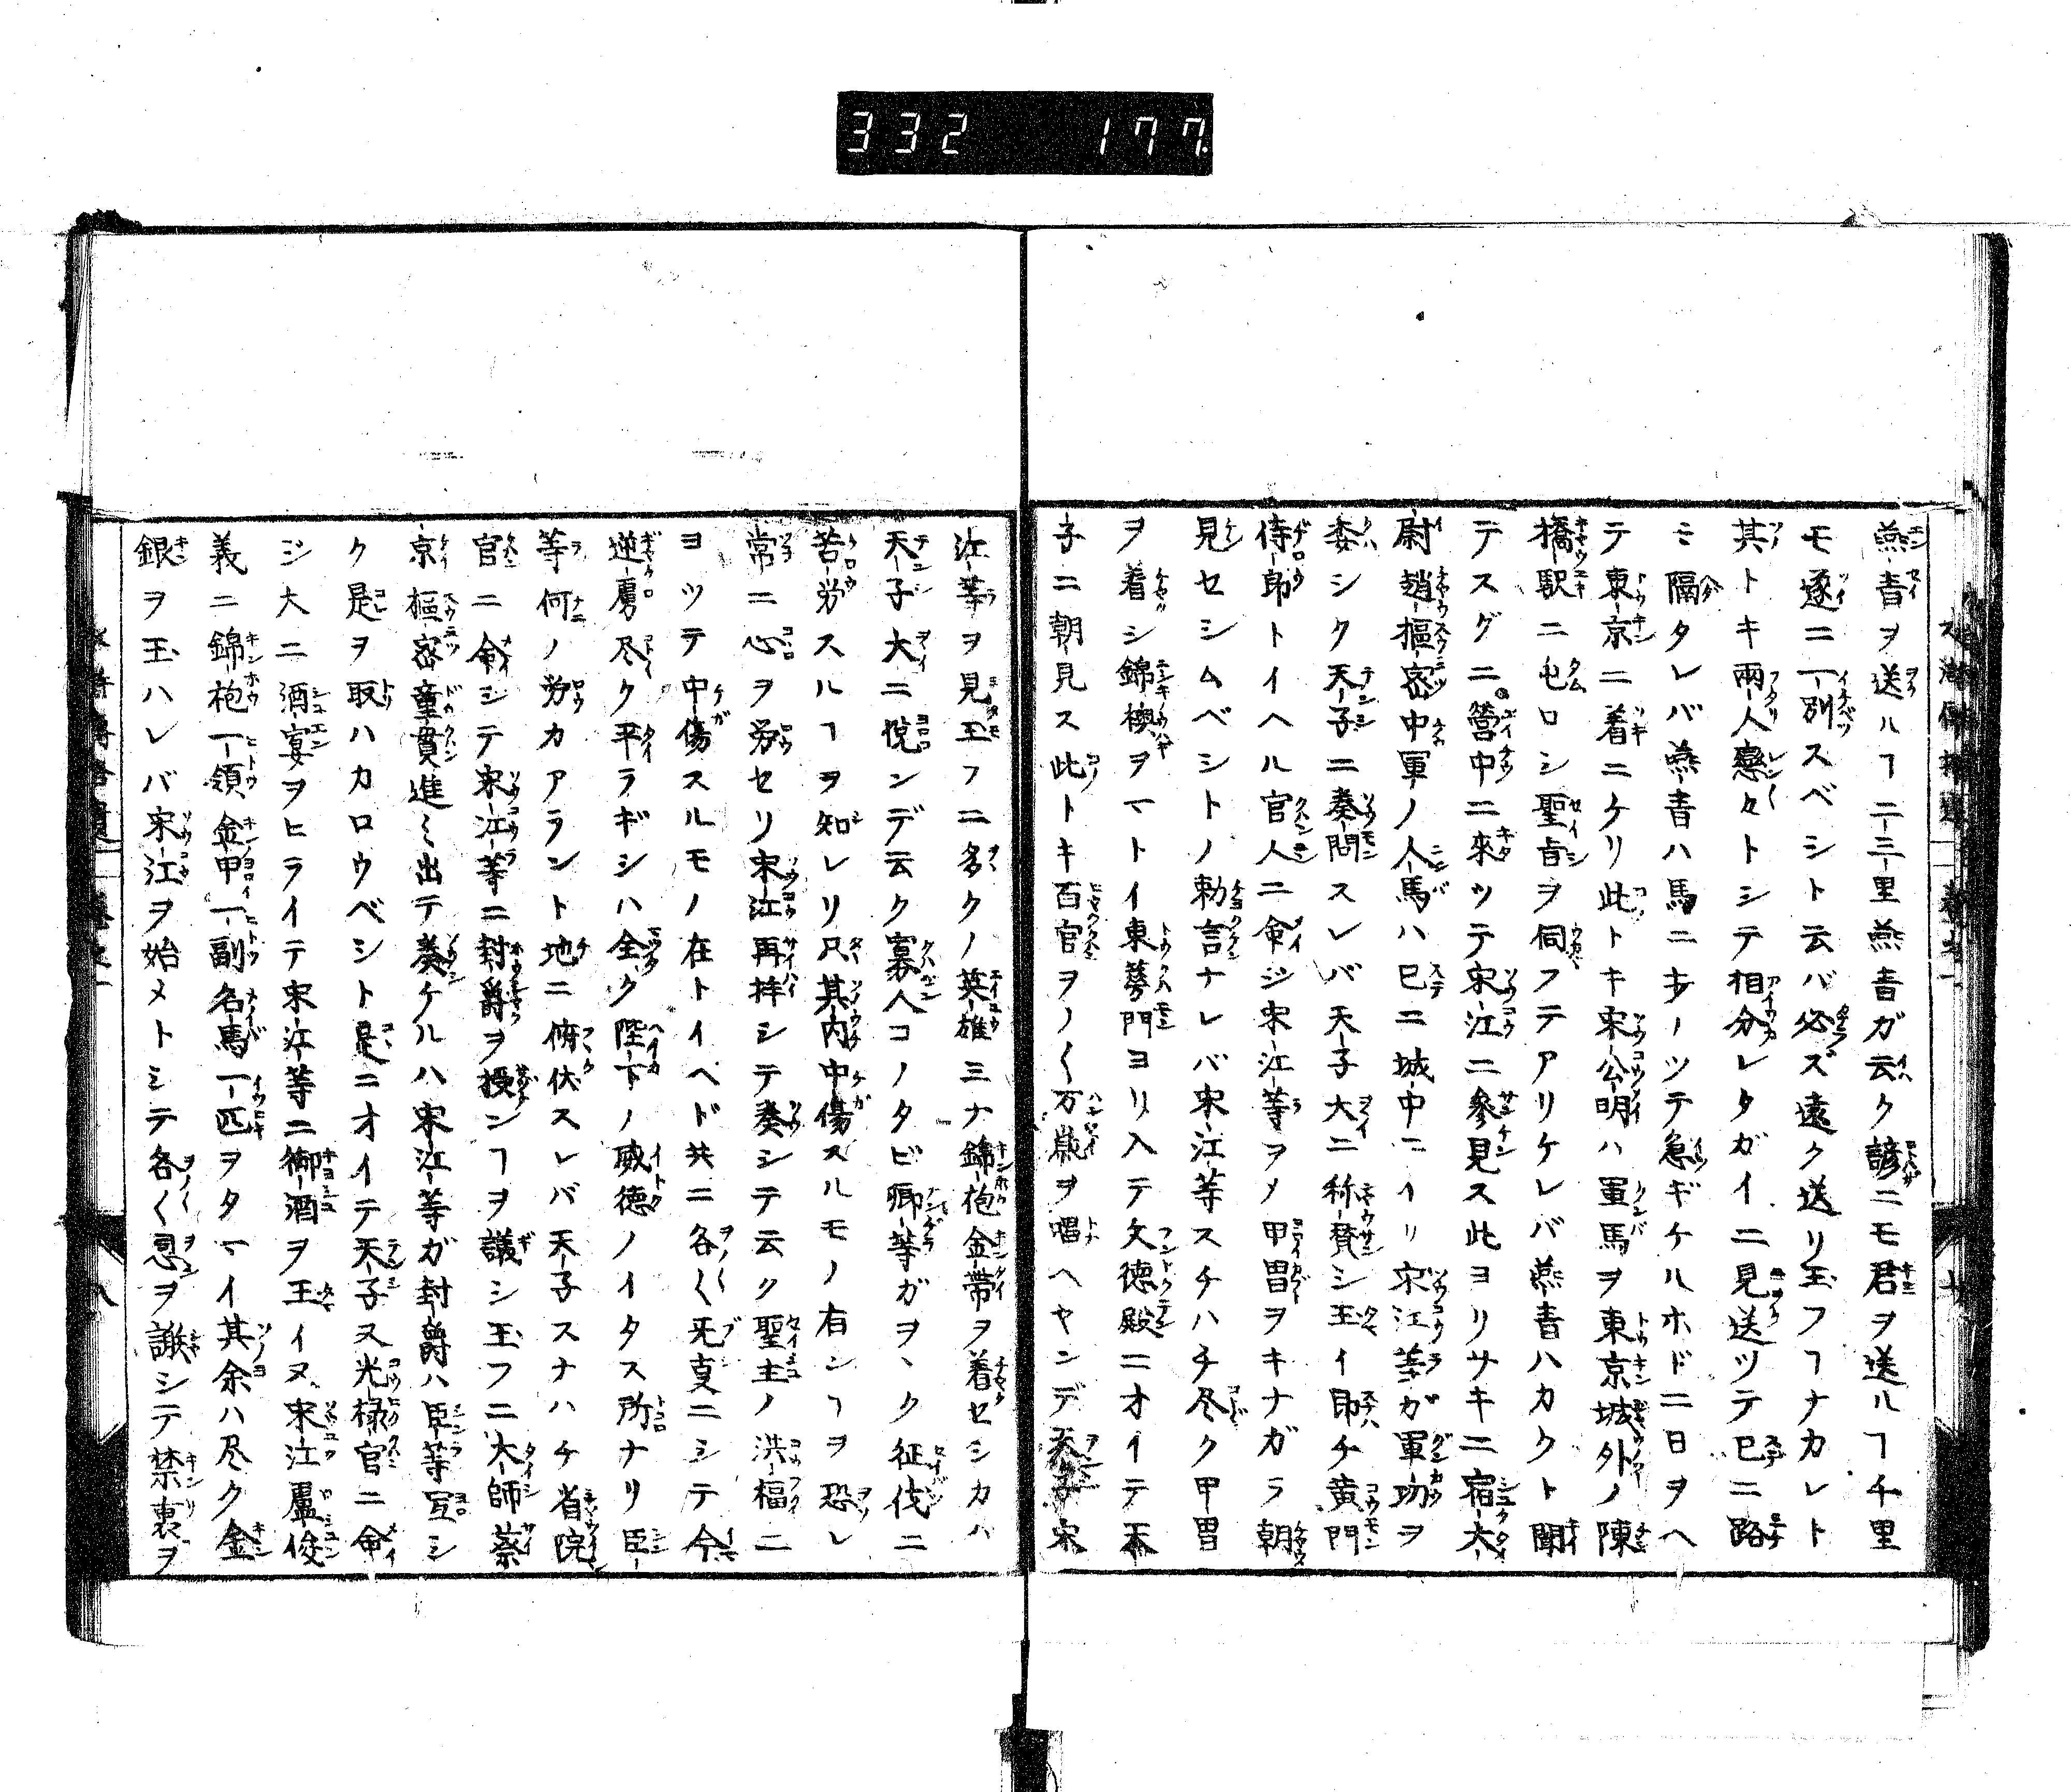 332 177
燕青ヲ送ルヿ二三里燕青ガ云ク諺ニモ君ヲ送ルヿ千里
モ遂ニ一別スベシト云バ必ズ遠ク送リ玉フヿナカレト
其トキ兩人戀々トシテ相分レタガイニ見送ツテ已ニ路
ミ隔タレバ燕青ハ馬ニ歩ノツテ急ギケルホドニ日ヲヘ
テ東京ニ着ニケリ此トキ宋公明ハ軍馬ヲ東京城外ノ陳
橋駅ニ屯ロシ聖旨ヲ伺フテアリケレバ燕青ハカクト聞
テスグニ營中ニ來ツテ宋江ニ參見ス此ヨリサキニ宿太
尉趙樞密中軍ノ人馬ハ已ニ城中ニイリ宋江等ガ軍功ヲ
委シク天子ニ奏問スレバ天子大ニ称賛シ玉イ即チ黄門
侍郎トイヘル官人ニ命ジ宋江等ヲメ甲冑ヲキナガラ朝
見セシムベシトノ勅言ナレバ宋江等スチハチ尽ク甲冑
ヲ着シ錦襖ヲマトイ東華門ヨリ入テ文徳殿ニオイテ天
子ニ朝見ス此トキ百官ヲノ〱万歳ヲ唱ヘヤンデ天子宋
江等ヲ見玉フニ多クノ英雄ミナ錦袍金帯ヲ着セシカハ
天子大ニ悦ンデ云ク寡人コノタビ卿等ガヲヽク征伐ニ
苦労スルヿヲ知レリ只其内中傷スルモノ有ンヿヲ恐レ
常ニ心ヲ労セリ宋江再拝シテ奏シテ云ク聖主ノ洪福ニ
ヨツテ中傷スルモノ在トイヘド共ニ各〱无㕝ニシテ今
逆虜尽ク平ラギシハ全ク陛下ノ威徳ノイタス所ナリ臣
等何ノ労カアラント地ニ俯伏スレバ天子スナハチ省院
官ニ命シテ宋江等ニ封爵ヲ授ンヿヲ議シ玉フニ太師蔡
京樞密童貫進ミ出テ奏ケルハ宋江等ガ封爵ハ臣等宜シ
ク是ヲ取ハカロウベシト是ニオイテ天子又光禄官ニ命
ジ大ニ酒宴ヲヒライテ宋江等ニ御酒ヲ玉イヌ宋江盧俊
義ニ錦袍一領金甲一副名馬一匹ヲタマイ其余ハ尽ク金
銀ヲ玉ハレバ宋江ヲ始メトシテ各〱恩ヲ謝シテ禁裏ヲ